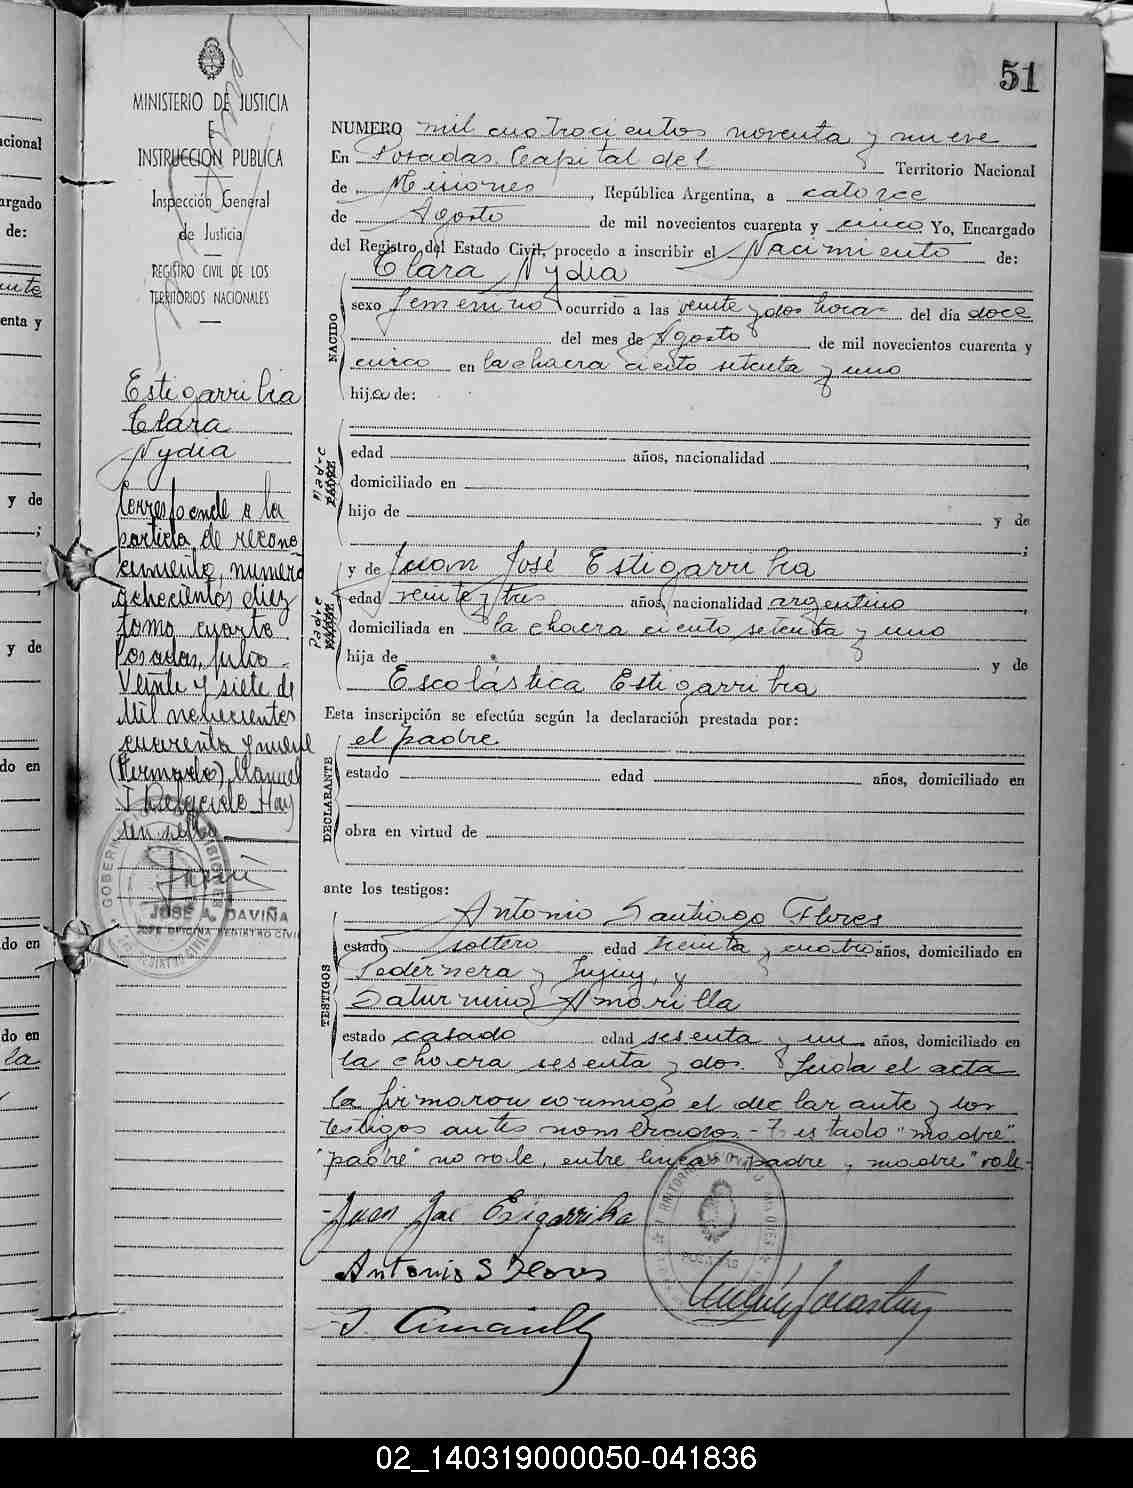 51
MINISTERIO DE JUSTICIA
E
INSTRUCCION PUBLICA
Inspección General
de Justicia
REGISTRO CIVIL DE LOS
TERRITORIOS NACIONALES
Estigarribia
Clara
Nydia
Corresponde a la
partida de recono-
cimiento, numero
ochocientos diez
tomo cuarto
Posadas, julio
veinte y siete de
Mil novecientos
cuarenta y nueve
(Firmado) Manuel
J Delgado Hay
un sello
JOSÉ A. DAVIÑA
JEFE OFICINA REGISTRO CIVIL
NUMERO mil cuatrocientos noventa y nueve
En Posadas. Capital del Territorio Nacional
de Misiones, República Argentina, a catorce
de Agosto de mil novecientos cuarenta y cinco Yo, Encargado
del Registro del Estado Civil, procedo a inscribir el Nacimiento de:
Clara Nydia
NACIDO
sexo femenino ocurrido a las veinte y dos horas del día doce
del mes de Agosto de mil novecientos cuarenta y
cinco en la chacra ciento setenta y uno
hija de:
Madre
edad años, nacionalidad
domiciliado en
hijo de y de
;
Padre
y de Juan José Estigarribia
edad veinte y tres años, nacionalidad argentino
domiciliada en la chacra ciento setenta y uno
hija de y de
Escolástica Estigarribia
Esta inscripción se efectúa según la declaración prestada por:
el padre
DECLARANTE
estado edad años, domiciliado en
obra en virtud de
ante los testigos:
Antonio Santiago Flores
TESTIGOS
estado soltero edad treinta y cuatro años, domiciliado en
Pedernera y Jujuy, y
Saturnino Amarilla
estado casado edad sesenta y un años, domiciliado en
la chacra sesenta y dos. Leida el acta
la firmaron conmigo el declarante y los
testigos antes nombrados.- Testado "madre"
"padre" no vale, entre lineas "padre y madre" vale-
Juan José Estigarribia
Antonio S Flores
S. Amarilla
POSADAS
acional
argado
de:
enta y
y de
;
y de
do en
do en
do en
la
02_140319000050-041836